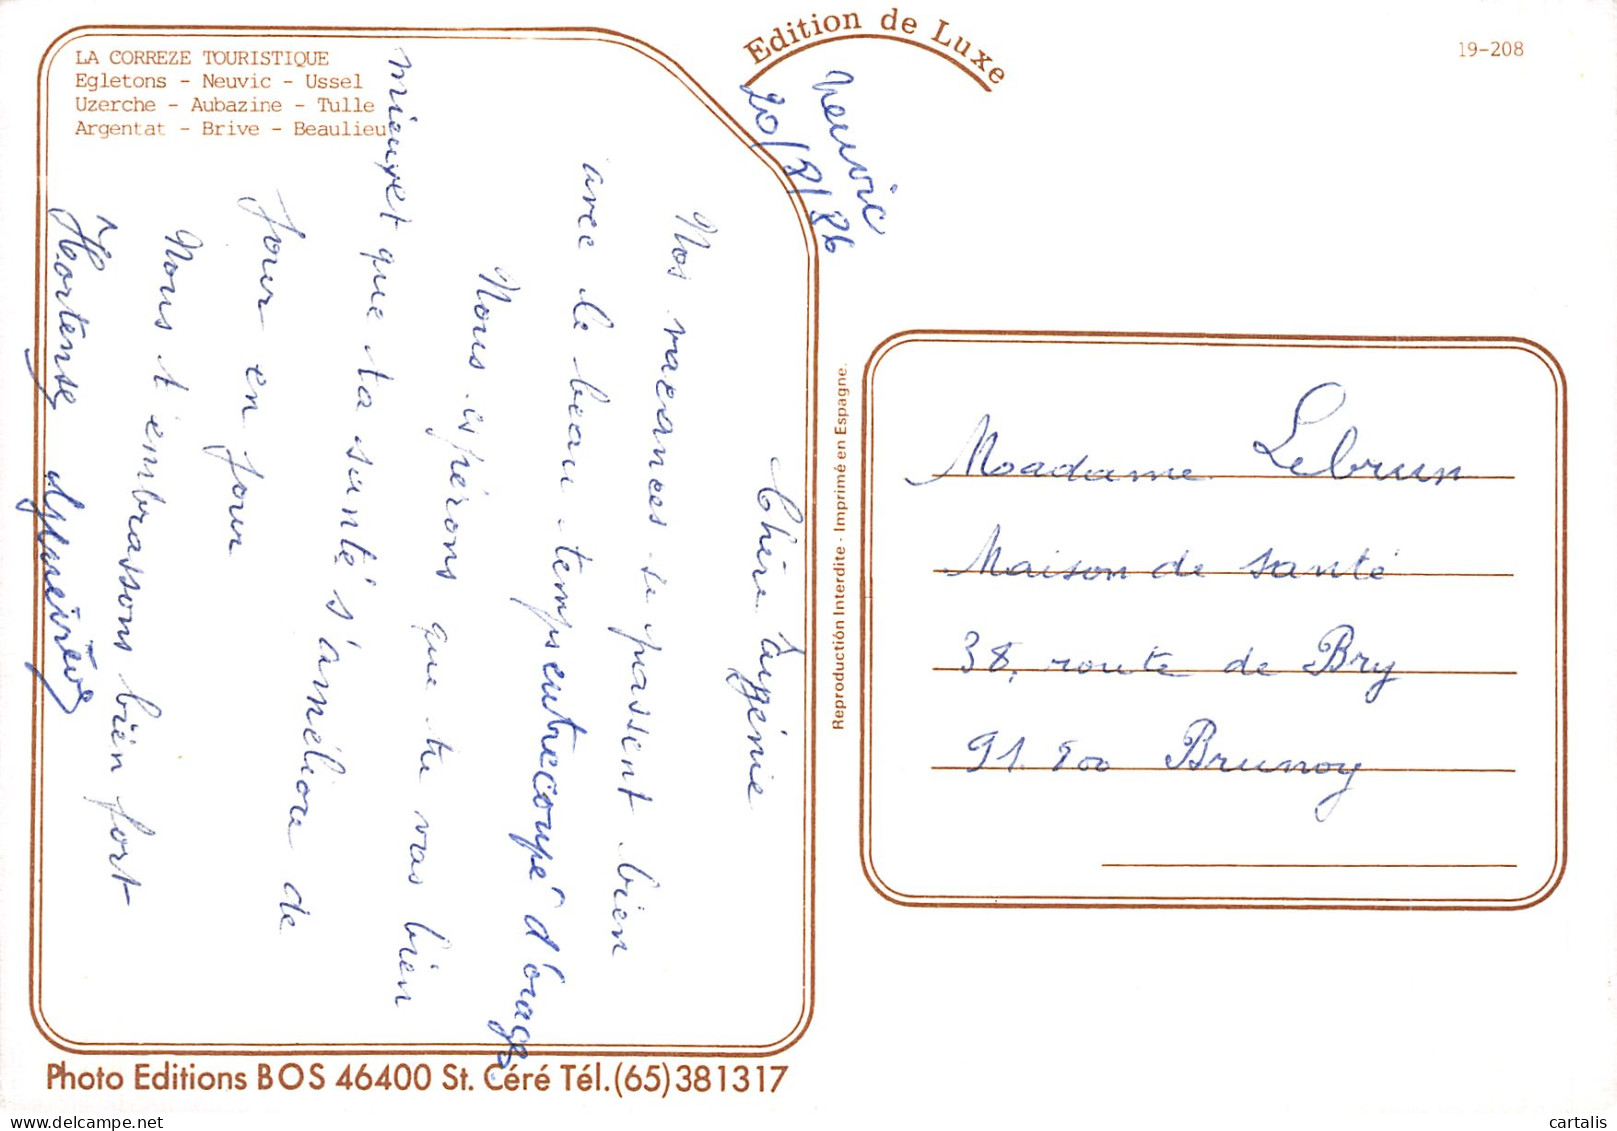 LA CORREZE TOURISTIQUE
Egletons - Neuvic - Ussel
Uzerche - Aubazine - Tulle
Argentat - Brive - Beaulieu
Edition de Luxe
19-208
Neuvic
20/8/86
Chère Eugénie
Nos vacances se passent bien
avec le beau temps entrecoupé d'orages.
Nous espérons que tu vas bien
mieux et que ta santé s'améliore de
jour en jour
Nous t'embrassons bien fort
Hortense
Reproduction Interdite - Imprimé en Espagne.
Madame Lebrun
Maison de santé
38, route de Bry
91.800 Brunoy
Photo Editions BOS 46400 St. Céré Tél.(65)381317
cartalis
delcampe.net